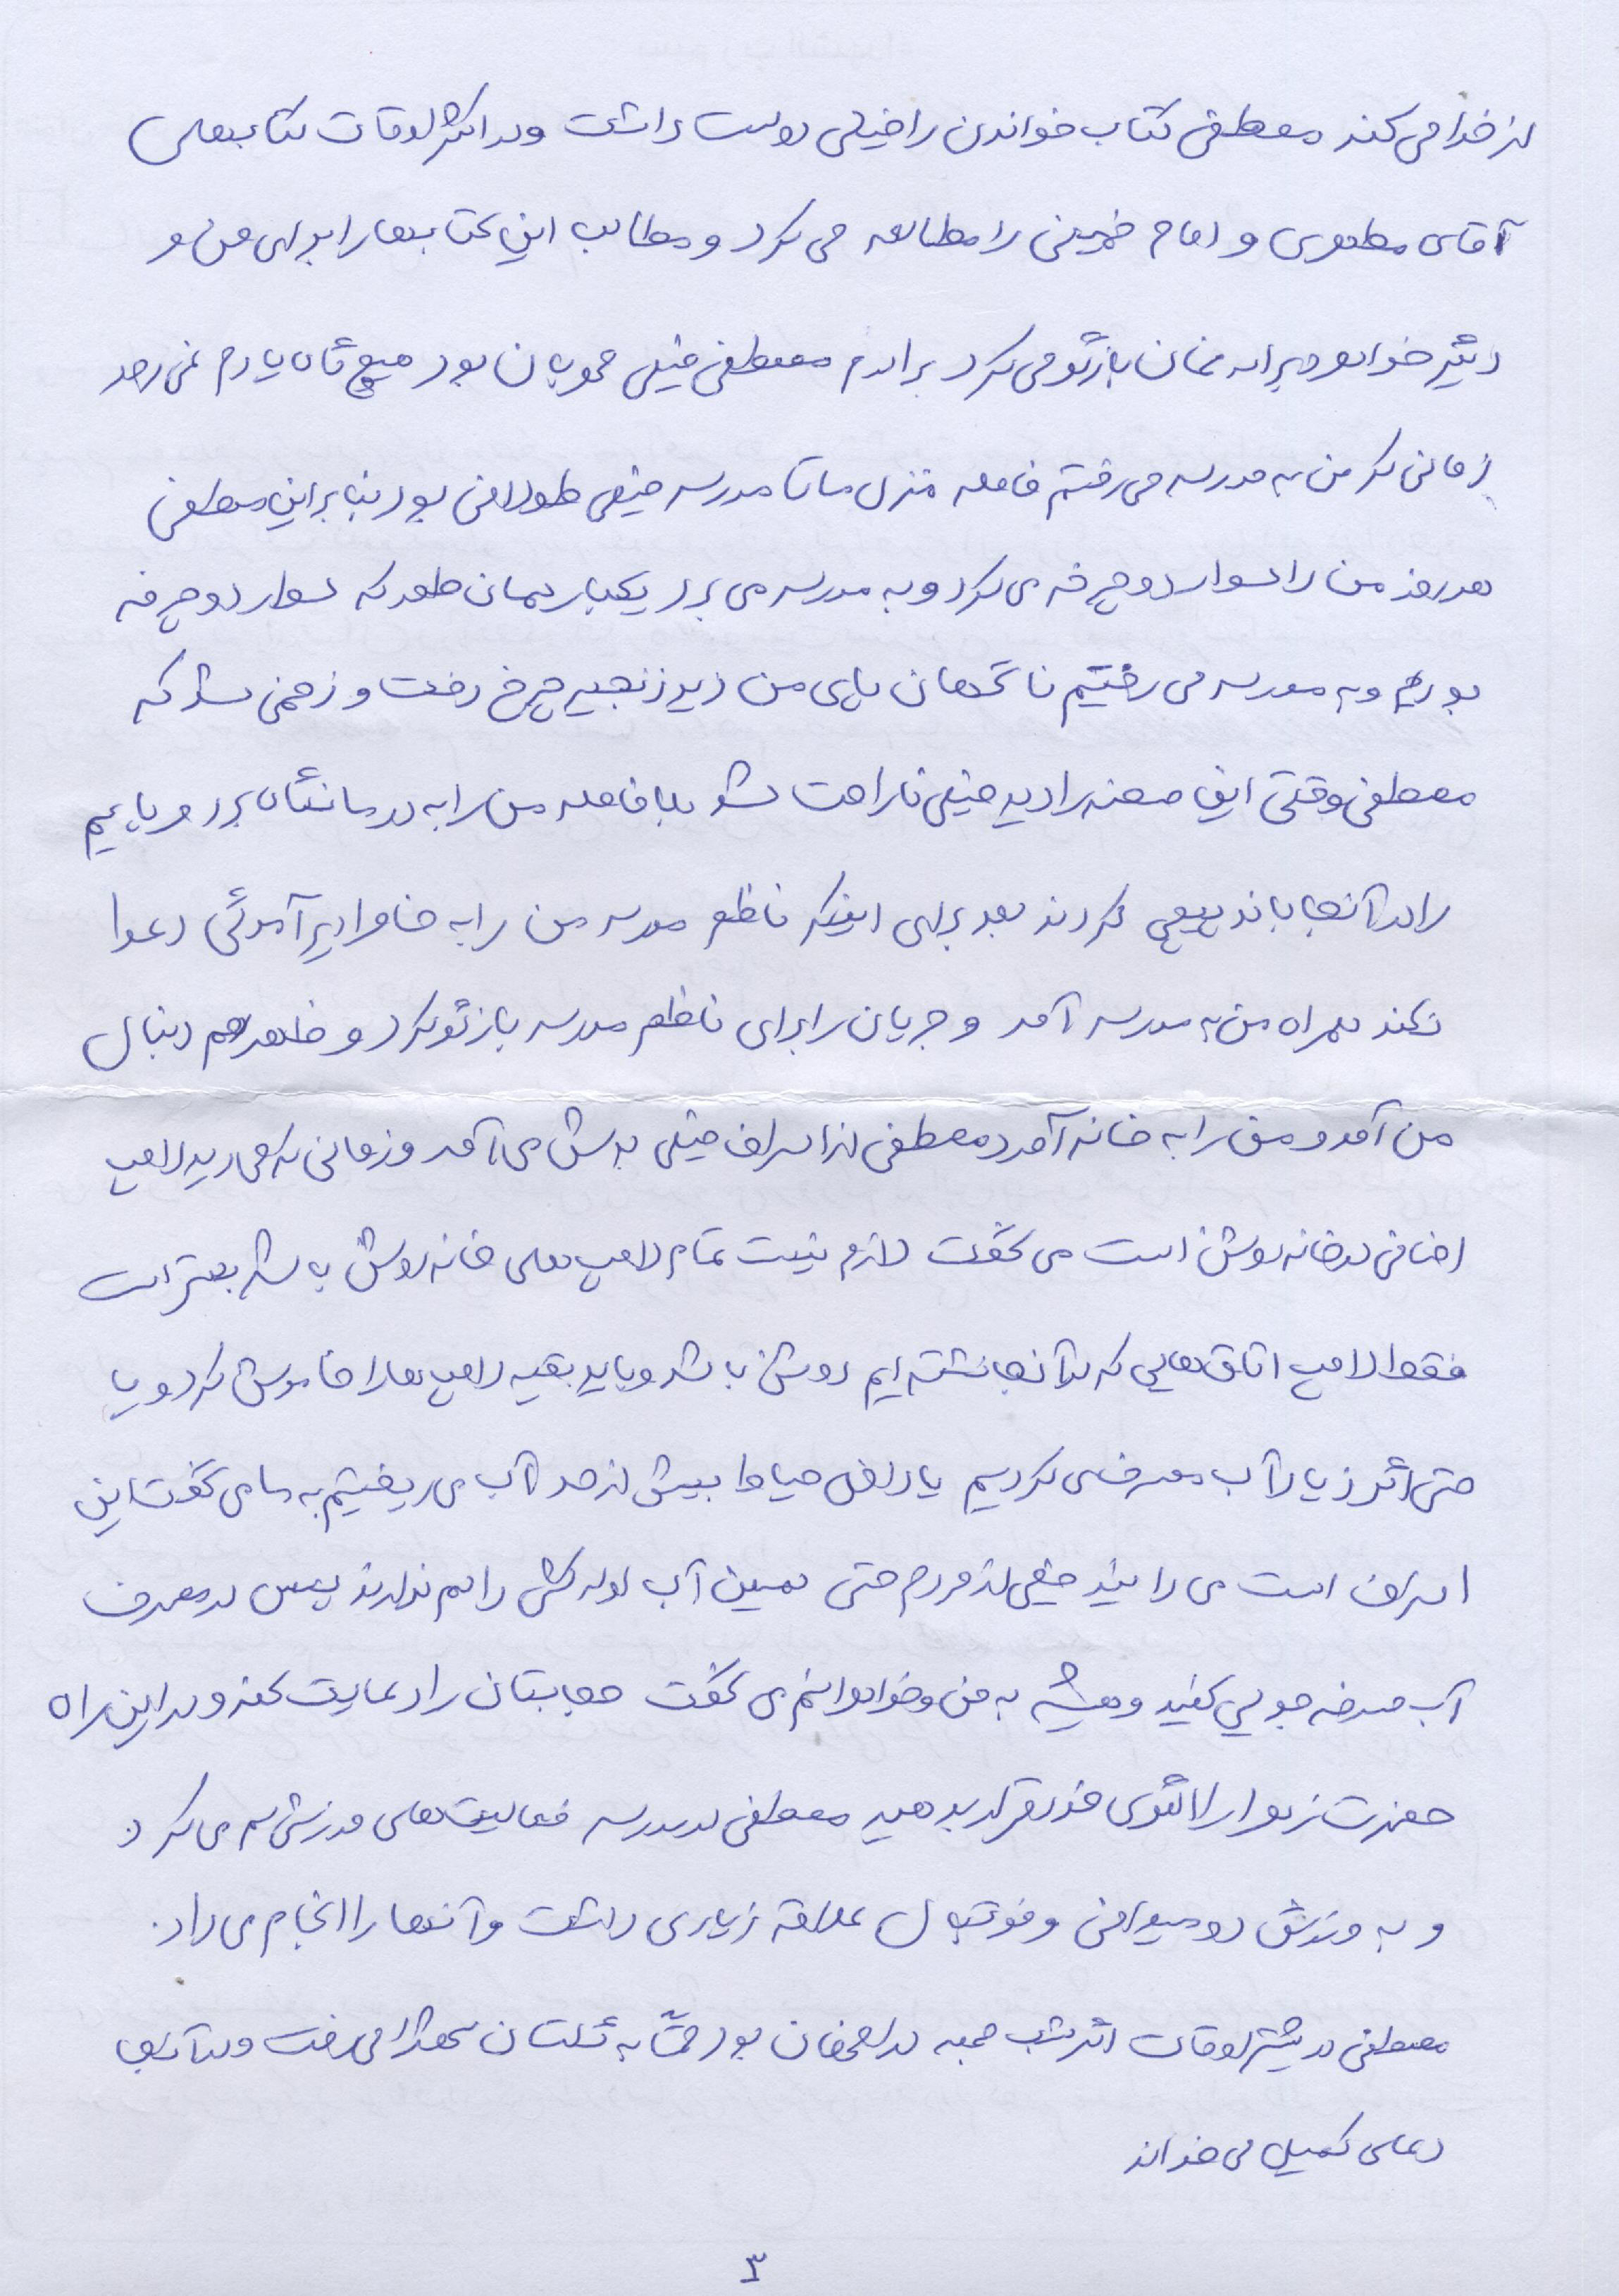 از خدا می کند مصطفی کتاب خواندن را خیلی دوست داشت و در اکثر اوقات کتابهای
آقای مطهری و امام خمینی را مطالعه می کرد و مطالب این کتابها را برای من و
دیگر خواهر و برادرمان بازگو می کرد برادرم مصطفی خیلی مهربان بود هیچ گاه یادم نمی رود
زمانی که من به مدرسه می رفتم فاصله منزل ما تا مدرسه خیلی طولانی بود بنابراین مصطفی
هر روز من را سوار دوچرخه می کرد و به مدرسه می برد یکبار همان طور که سوار دوچرخه
بودیم و به مدرسه می رفتیم ناگهان پای من زیر زنجیر چرخ رفت و زخمی شد که
مصطفی وقتی این صحنه را دید خیلی ناراحت شد بلافاصله من را به درمانگاه برد و پایم
را در آنجا باند پیچی کردند بعد برای اینکه ناظم مدرسه من را به خاطر دیر آمدگی دعوا
نکند همراه من به مدرسه آمد و جریان را برای ناظم مدرسه بازگو کرد و ظهر هم دنبال
من آمد و من را به خانه آورد مصطفی از اسراف خیلی بدش می آمد و زمانی که می دید لامپ
اضافی در خانه روشن است می گفت لازم نیست تمام لامپ های خانه روشن باشد بهتر است
فقط لامپ اتاق هایی که در آنجا نشسته ایم روشن باشد و باید بقیه لامپ ها را خاموش کرد و یا
حتی اگر زیاد آب مصرف می کردیم یا داخل حیاط بیش از حد آب می ریختیم به ما می گفت این
اسراف است می دانید خیلی از مردم حتی همین آب لوله کشی را هم ندارند پس در مصرف
آب صرفه جویی کنید و همیشه به من و خواهرانم می گفت حجابتان را رعایت کنید و در این راه
حضرت زهرا را الگوی خود قرار بدهید مصطفی در مدرسه فعالیت های ورزشی هم می کرد
و به ورزش دومیدانی و فوتبال علاقه زیادی داشت و آنها را انجام می داد.
مصطفی در بیشتر اوقات اگر شب جمعه در اصفهان بود حتماً به گلستان شهدا می رفت و در آنجا
دعای کمیل می خواند
۳